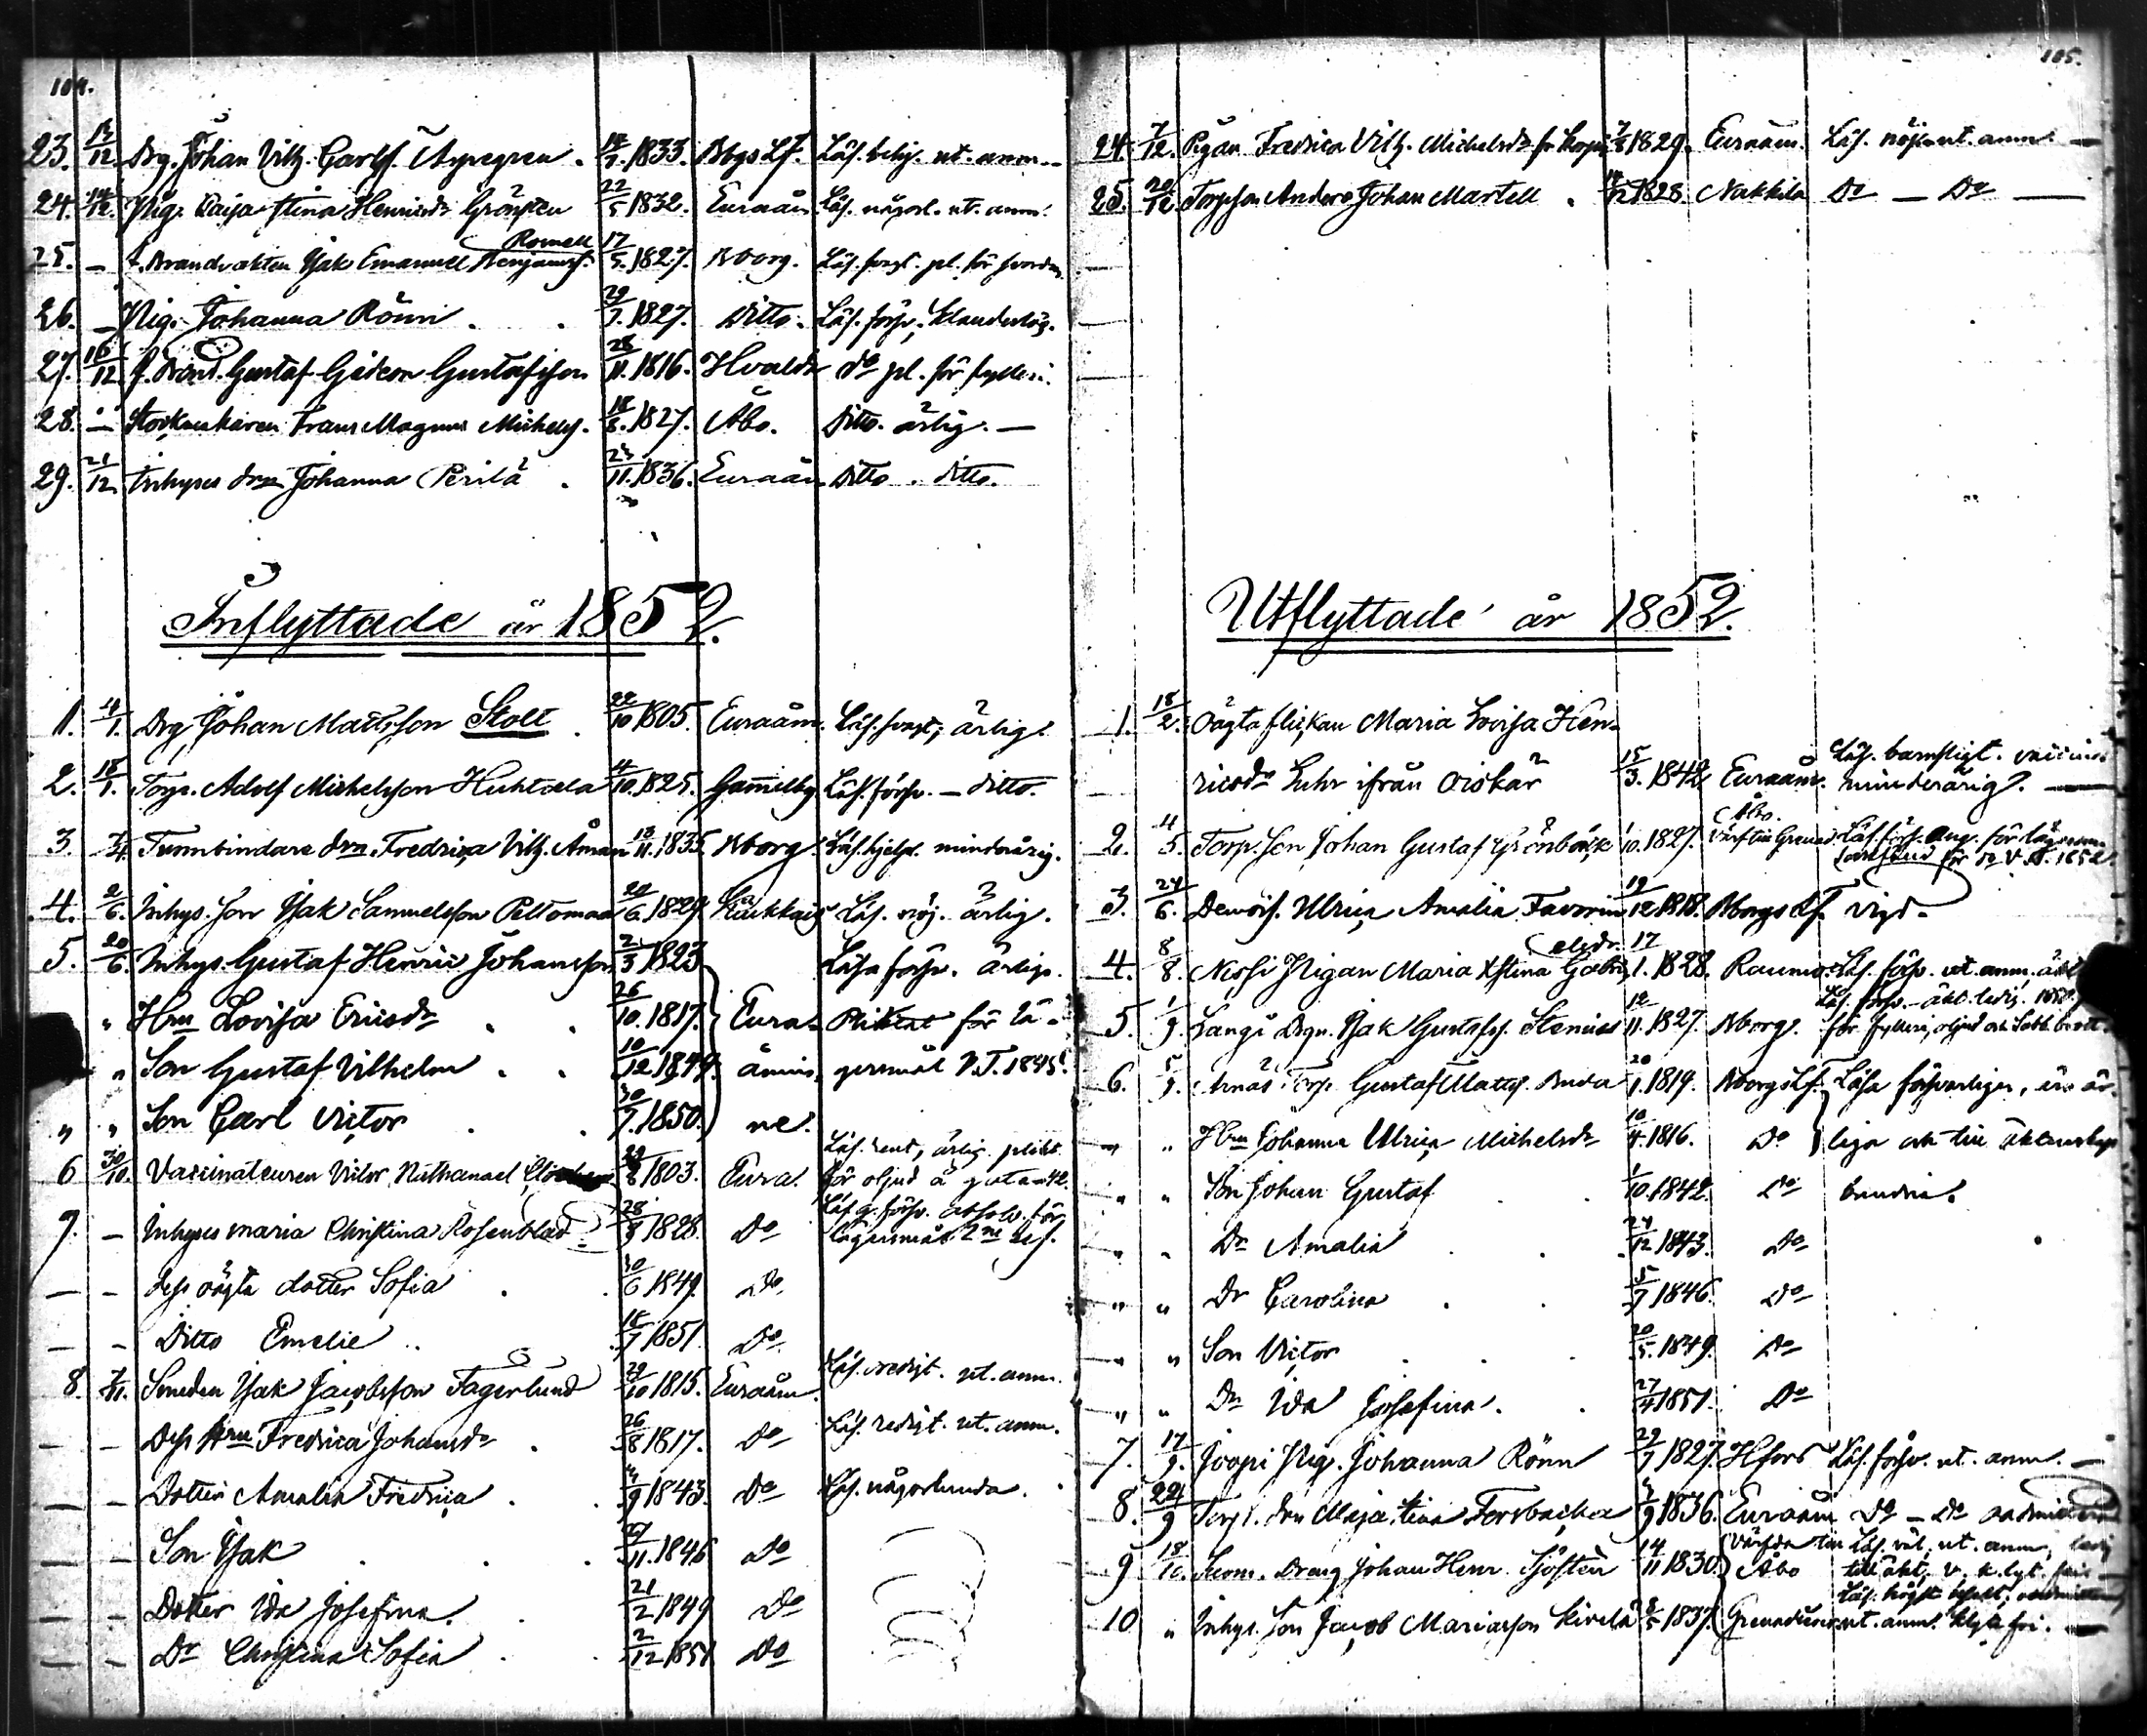 104.
23. 13/12. Drg. Johan Vilh. Carlss. 14/7. 1833. Bbgs Lf. Läs. behj. ut. anm.
24. 14/12. Pig. Caija Stina Henricsdr Grönsten 22/5 1832. Euraåm. Läs. någorl. ut. anm.
Romell
25. — f. Brandvakten Isak Emanuel Benjamss. 17/5. 1827. Bborg. Läs. svagt. pl. för
26. — Pig. Johanna Rönn. 29/7. 1827. Ditto. Läs. försv., klanderlös.
27. 16/12. f. Gustaf Gideon Gustafsson 28/11. 1816. Hvalds do pl. för fylleri.
28. — Frans Magnus Michelss. 18/8. 1827. Åbo. Ditto. ärlig. —
29. 21/12 Inhyses drn Johanna Perilä. 23/11. 1836. Euraåm. Ditto. ditto.
Inflyttade år 1852.
1. 4/1. Drg Johan Mattsson Stolt. 22/10 1805. Euraåm. Läs. svagt, ärlig.
2. 18/1. Torp. Adolf Michelsson Huhtala 4/10. 1825. Gammelby Läs. försv. — ditto.
3. Tunnbindare drn. Fredrica Vilh. Åman 13/11. 1835. Bborg. Läs. hjelpl. minderårig.
4. 2/6. Inhys. Son Isak Samuelsson Peltomaa 20/6. 1829. Läs. nöj. ärlig.
5. 20/6. Inhys. Gustaf Henric Johansson 2/3 1823 Läsa försv. ärliga.
" Hru Lovisa Ericsdr 26/10. 1817. Eura- Pliktat för lä-
" Son Gustaf Vilhelm 10/12. 1849. åmin- gersmål V.T. 1845.
" " Son Carl Victor 30/7. 1850. ne.
6 30/10. Vaccinateuren Victor Nathanael 1803. Eura. Läs. rent, ärlig. plikt.
för oljud å gata 42.
7. — Inhyses Maria Christina Rosenblad 28/8 1828. Do Läs. g. försv. absolv. för
lägersmål 2ne res.
— — dess oägta dotter Sofia 30/6 1849. Do
— — Ditto Emelie 15/7 1851 Do
8. 7/11. Smeden Isak Jacobsson Fagerlund 29/10 1815. Euraåm. Läs. redigt. ut. anm.
— — Dess Hru Fredrica Johansdr 26/8 1817. Do Läs. redigt. ut. anm.
— — Dotter Amalia Fredrica 4/9 1843. Do Läs. någorlunda.
— — Son Isak 27/11. 1846 Do
— — Dotter Ida Josefina. 21/2 1849 Do
— — Dr Christina Sofia 2/12 1851 Do
105.
24. 7/12. Pigan Fredrica Vilh. Michelsdr 1829. Euraåm. Läs. nöj. ut. anm. —
25. 20/12. Torpson Anders Johan Martell. 14/12 1828. Nakkila Do — Do —
Utflyttade år 1852.
1. 18/2. Oägta flickan Maria Lovisa Hen-
ricsdr Luhr ifrån Oiskar 15/3. 1842 Euraåm. Läs. barnsligt. vaccin.
minderårig. —
2. 4/5. Torp. Son Johan Gustaf Grönbäck 1/10. 1827. Åbo. Läs. försv. Ang. för lägersm.
3. 24/6. Demois. Ulrica Amalia Favorin 19/12 1818. Bborgs Lf. Vigd.
4. 8/8. Pigan Maria Kstina 17/1. 1828. Raumo Läs. försv. ut. anm.
5. 1/9. Långi Drgn. Isak Gustafss. Stenius 12/11. 1827. Bborg. Läs. försv. äkt. ledig.
för fylleri, oljud och Sabb. brott.
6. 5/9. Arnäs Torp. Gustaf Matss. Buda 20/1. 1819. Bborgs Lf. Läsa försvarligen, äro är-
" " Hru Johanna Ulrica Michelsdr 10/4. 1816. Do liga och till äktenskap
" " Son Johan Gustaf 1/10. 1842. Do bundna.
" " Dr Amalia 24/12 1843. Do
" " Dr Carolina 5/7 1846. Do
" " Son Victor 20/5. 1849. Do
" " Dr Ida Josefina. 27/4 1851. Do
7. 17/9. Joopi Pig. Johanna Rönn 29/7 1827. Hfors Läs. försv. ut. anm. —
8. 22/9 Torp. drn Maja Stina Forsbacka 1836. Euraåm Do — Do
9 18/10. Skom. Dräng Johan Henr. Sjösten 14/11 1830. Åbo Läs. väl, ut. anm, ledig
till äkt.
10 " Inhys. Son Jacob Mariasson Kivelä 1837. ut. anm.